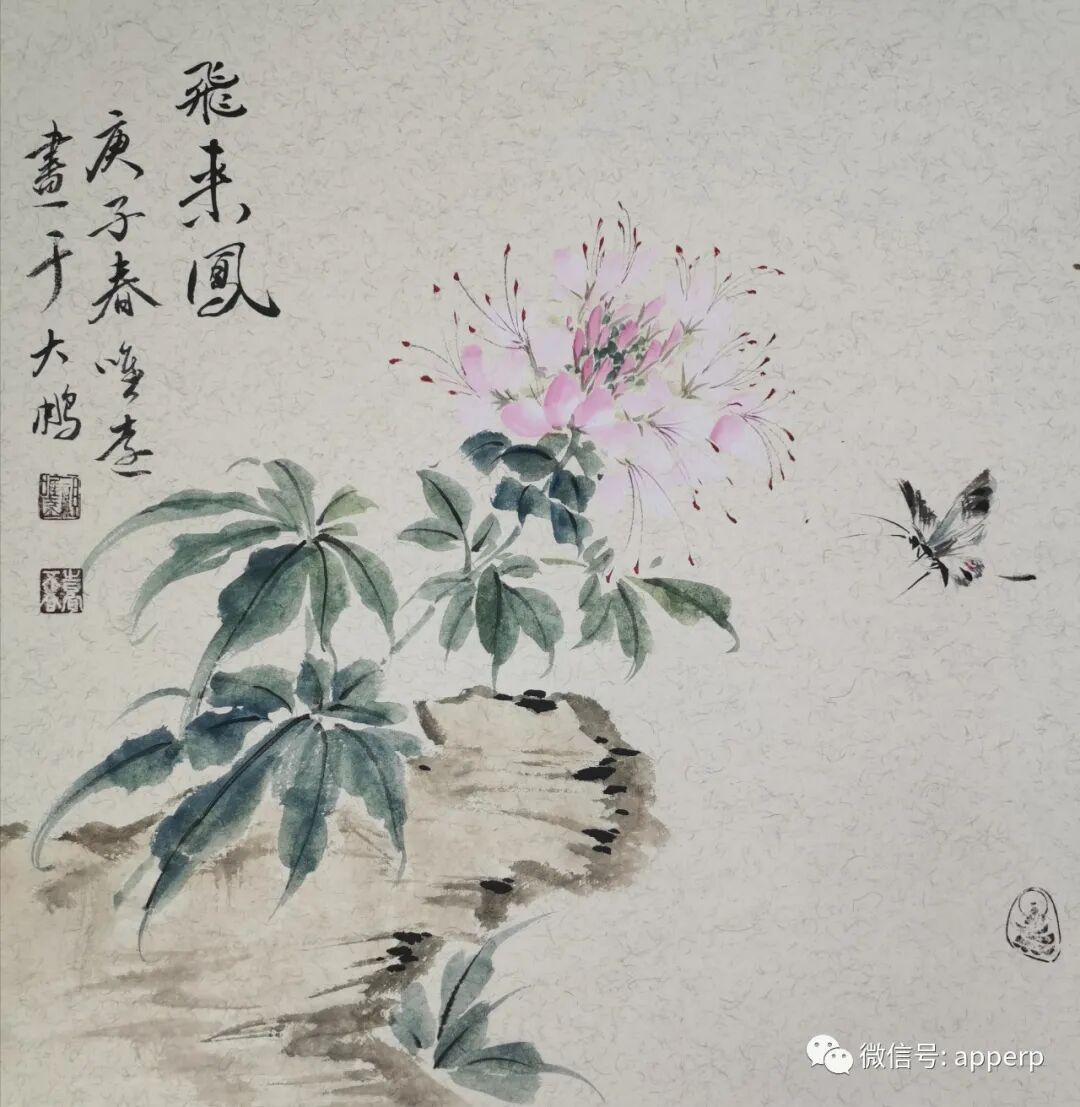 飛来鳳
庚子春唯
畫于大鹏
微信号: apperp